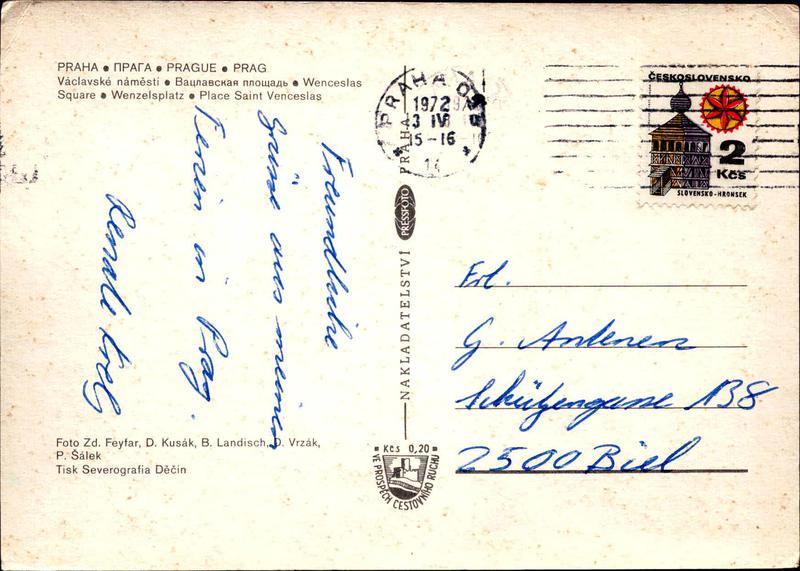 PRAHA • ПРАГА • PRAGUE • PRAG
Václavské náměstí • Вацлавская площадь • Wenceslas
Square • Wenzelsplatz • Place Saint Venceslas
Freundliche
Grüsse aus meinen
Ferien in Prag.
Renate
Foto Zd. Feyfar, D. Kusák, B. Landisch, D. Vrzák,
P. Šálek
Tisk Severografia Děčín
NAKLADATELSTVÍ PRESSFOTO PRAHA
Kčs 0,20
VE PROSPĚCH CESTOVNÍHO RUCHU
PRAHA
1972
3 IV
15-16
ČESKOSLOVENSKO
2
Kčs
SLOVENSKO-HRONSEK
Frl.
G. Antenen
Schützengasse 138
2500 Biel